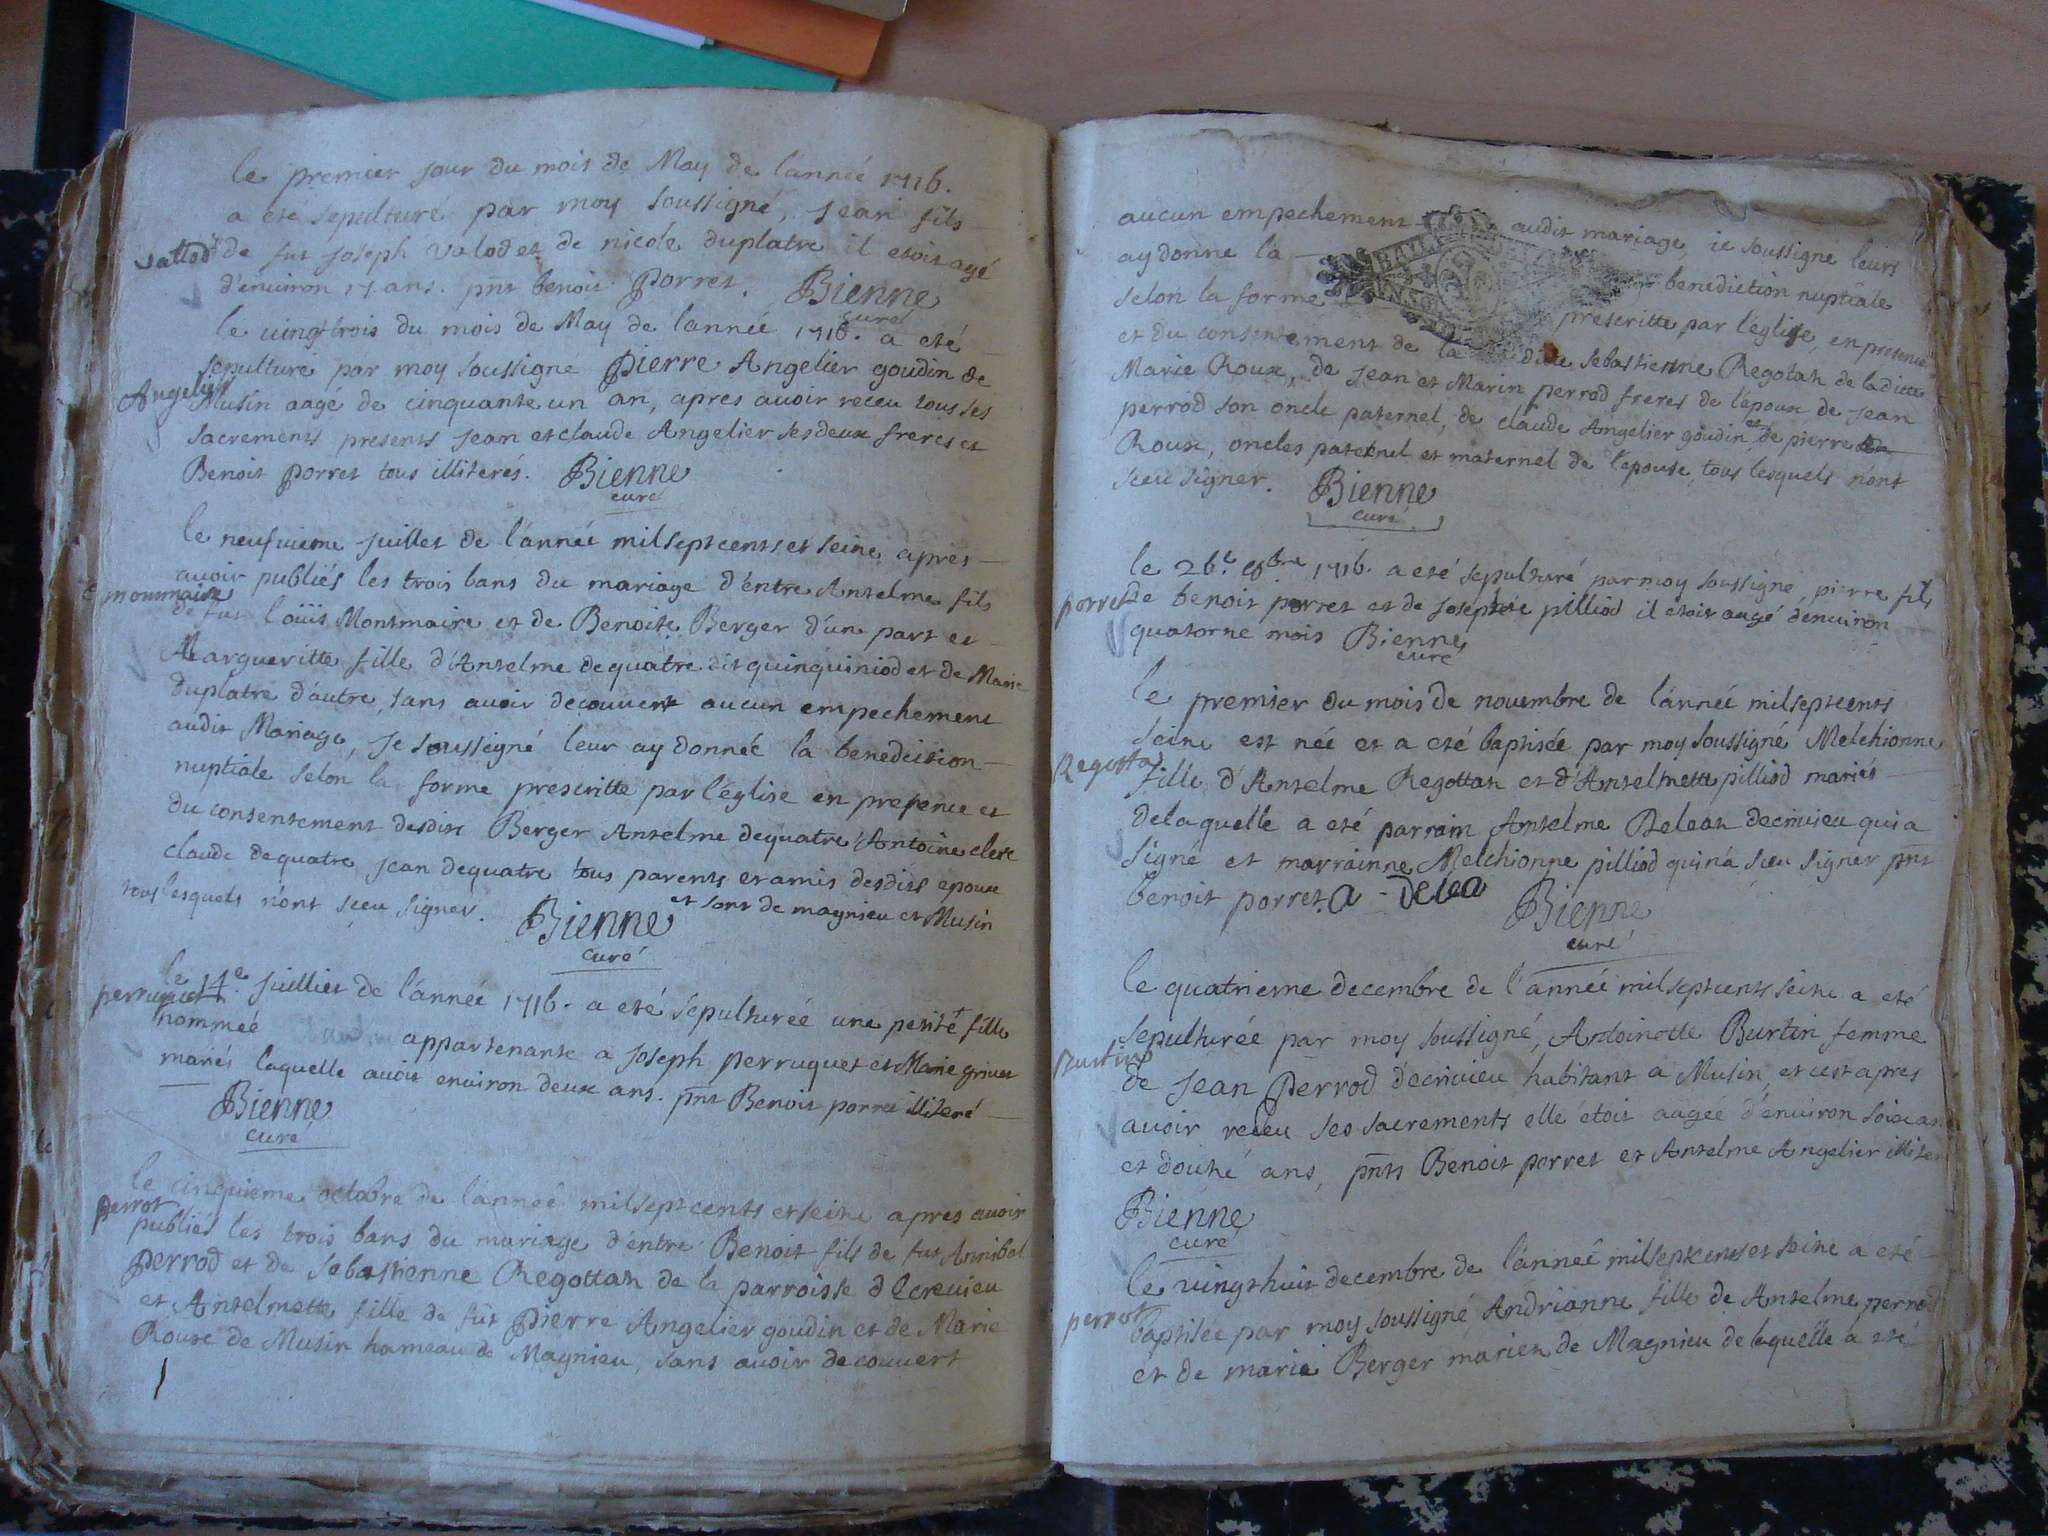 le premier jour du mois de May de l'année 1716.
a eté sepulturé par moy soussigné, Jean fils
vallod de fut joseph valod et de nicole duplatre il etoit agé
d'environ 17 ans. pnt benoit porret. Bienne
curé
le vingt trois du mois de May de l'année 1716. a eté
sepulturé par moy soussigne pierre Angelier goudin de
Angely Musin aagé de cinquante un an, apres avoir receu tous ses
sacrements presents jean et claude Angelier ses deux freres et
Benoit porret tous illiterés. Bienne
curé
le neufvieme juillet de l'année mil sept cents et seize apres
avoir publiés les trois bans du mariage d'entre Antelme fils
monmaire de fut loüis Montmaire et de Benoite Berger d'une part et
Margueritte fille d'Antelme dequatre dit quinquiniod et de Marie
duplatre d'autre, sans avoir decouvert aucun empechement
audit Mariage, je soussigné leur ay donnée la benediction
nuptiale selon la forme prescritte par l'église en presence et
du consentement desdits Berger Antelme dequatre Antoine clerc
claude dequatre jean dequatre tous parents et amis desdits epoux
et sont de magnieu et Musin
tous lesquels n'ont sceu signer. Bienne
curé
le 14e juillier de l'année 1716. a eté sepulturéé une petite fille
perruquet nommeé appartenante a joseph perruquet et Marie grinet
mariés laquelle avoit environ deux ans. pnt Benoit porret illiteré
Bienne
curé
le cinquieme octobre de l'année mil sept cents et seize apres avoir
perrot publiés les trois bans du mariage d'entre Benoit fils de fut Annibal
perrod et de Sebastienne Regottaz de la parroisse d'Ecrevieu
et Antelmette fille de fut pierre Angelier goudin et de Marie
Roux de Musin hameau de Magnieu, sans avoir decouvert
aucun empechement audit mariage, je soussigne leurs
ay donne la benediction nuptiale
selon la forme prescritte par l'église, en presence
et du consentement de la dite Sebastienne Regotaz de la dite
Marie Roux, de jean et Marin perrod freres de l'époux de jean
perrod son oncle paternel, de claude Angelier goudin et de pierre
Roux, oncles paternel et maternel de l'epouse, tous lesquels n'ont
sceu signer. Bienne
curé
le 26e 8bre 1716. a eté sepulturé par moy soussigné, pierre fils
porret de benoit porret et de josephte pilliod il etoit augé d'environ
quatorze mois Bienne
curé
le premier du mois de novembre de l'année mil sept cents
seize est née et a eté baptisée par moy soussigné Melchionne
Regotta fille d'Antelme Regottaz et d'Antelmette pilliod mariés
de laquelle a eté parrain Antelme Deleaz decrivieu qui a
signé et marrainne Melchionne pilliod qui n'a sceu signer pnt
benoit porret. a - Delea Bienne
curé
le quatrieme decembre de l'année mil sept cents seize a eté
sepulturée par moy soussigné, Antoinette Burtin femme
Burtin de jean perrod decrivieu habitant a Musin, et c'est apres
avoir receu ses sacrements elle étoit augéé d'environ soixante
et douzé ans, pnts Benoit porret et Antelme Angelier illiter
Bienne
curé
le vingt huit decembre de l'année mil sept cents et seize a eté
perrot baptisée par moy soussigné Andrianne fille de Antelme perrod
et de marie Berger mariez de Magnieu de laquelle a eté